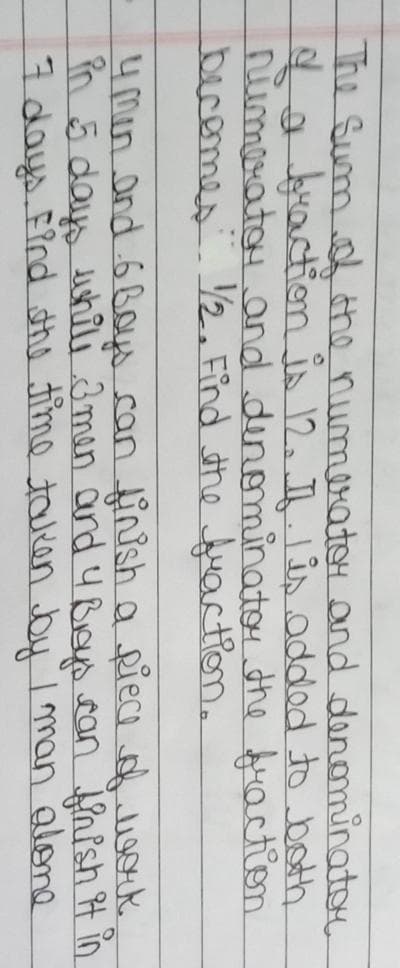 The Sum of the numerator and denominator
of a fraction is 12. If 1 is added to both
numerator and denominator the fraction
becomes 1/2. Find the fraction.
4 men and 6 Boys can finish a piece of work
in 5 days while 3 men and 4 Boys can finish it in
7 days. Find the time taken by 1 man alone